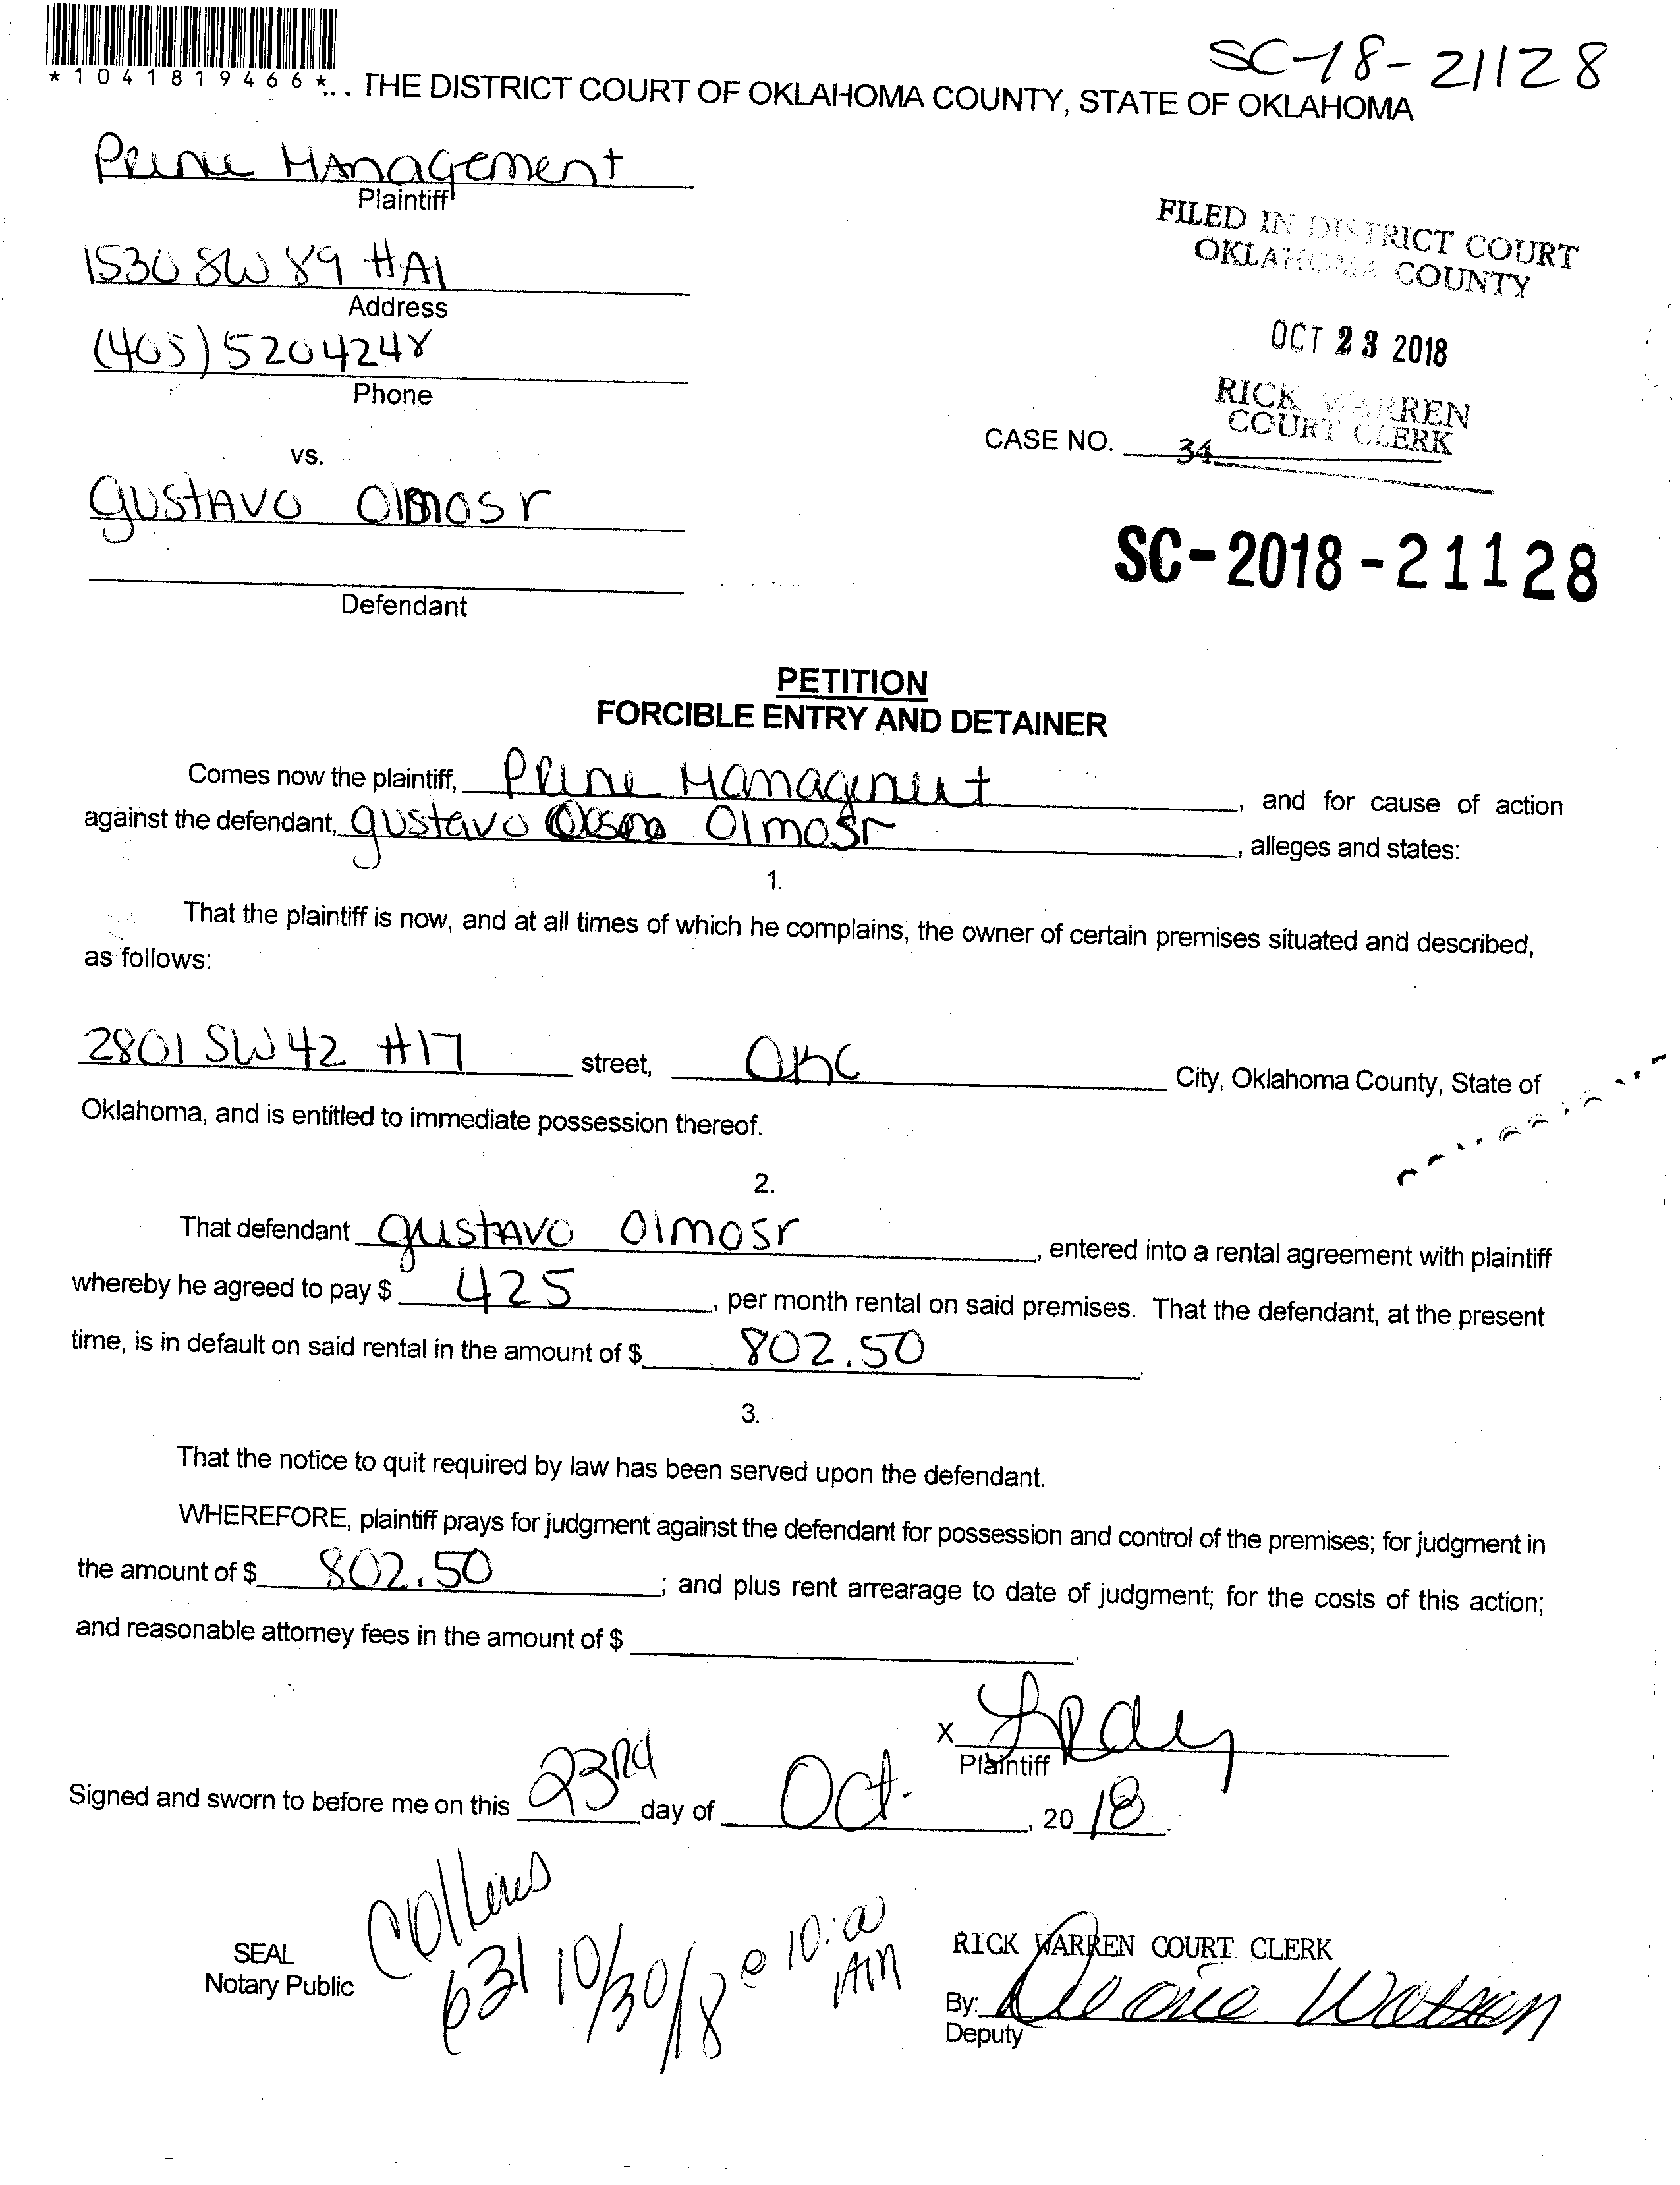 SC-18-21128
*1041819466*
THE DISTRICT COURT OF OKLAHOMA COUNTY, STATE OF OKLAHOMA
Prime Management
Plaintiff
1530 SW 89 #A1
Address
(405) 5204248
Phone
vs.
Gustavo Olmosr
Defendant
FILED IN DISTRICT COURT
OKLAHOMA COUNTY
OCT 23 2018
RICK WARREN
COURT CLERK
CASE NO. 34
SC-2018-21128
PETITION
FORCIBLE ENTRY AND DETAINER
Comes now the plaintiff, Prime Management, and for cause of action
against the defendant, Gustavo Olmosr, alleges and states:
1.
That the plaintiff is now, and at all times of which he complains, the owner of certain premises situated and described,
as follows:
2801 SW 42 #17 street, OKC City, Oklahoma County, State of
Oklahoma, and is entitled to immediate possession thereof.
2.
That defendant Gustavo Olmosr, entered into a rental agreement with plaintiff
whereby he agreed to pay $ 425, per month rental on said premises. That the defendant, at the present
time, is in default on said rental in the amount of $ 802.50.
3.
That the notice to quit required by law has been served upon the defendant.
WHEREFORE, plaintiff prays for judgment against the defendant for possession and control of the premises; for judgment in
the amount of $ 802.50; and plus rent arrearage to date of judgment; for the costs of this action;
and reasonable attorney fees in the amount of $ .
X
Plaintiff
Signed and sworn to before me on this 23rd day of Oct., 2018.
Collins
631 10/30/18 @ 10:00
AM
SEAL
Notary Public
RICK WARREN COURT CLERK
By:
Deputy